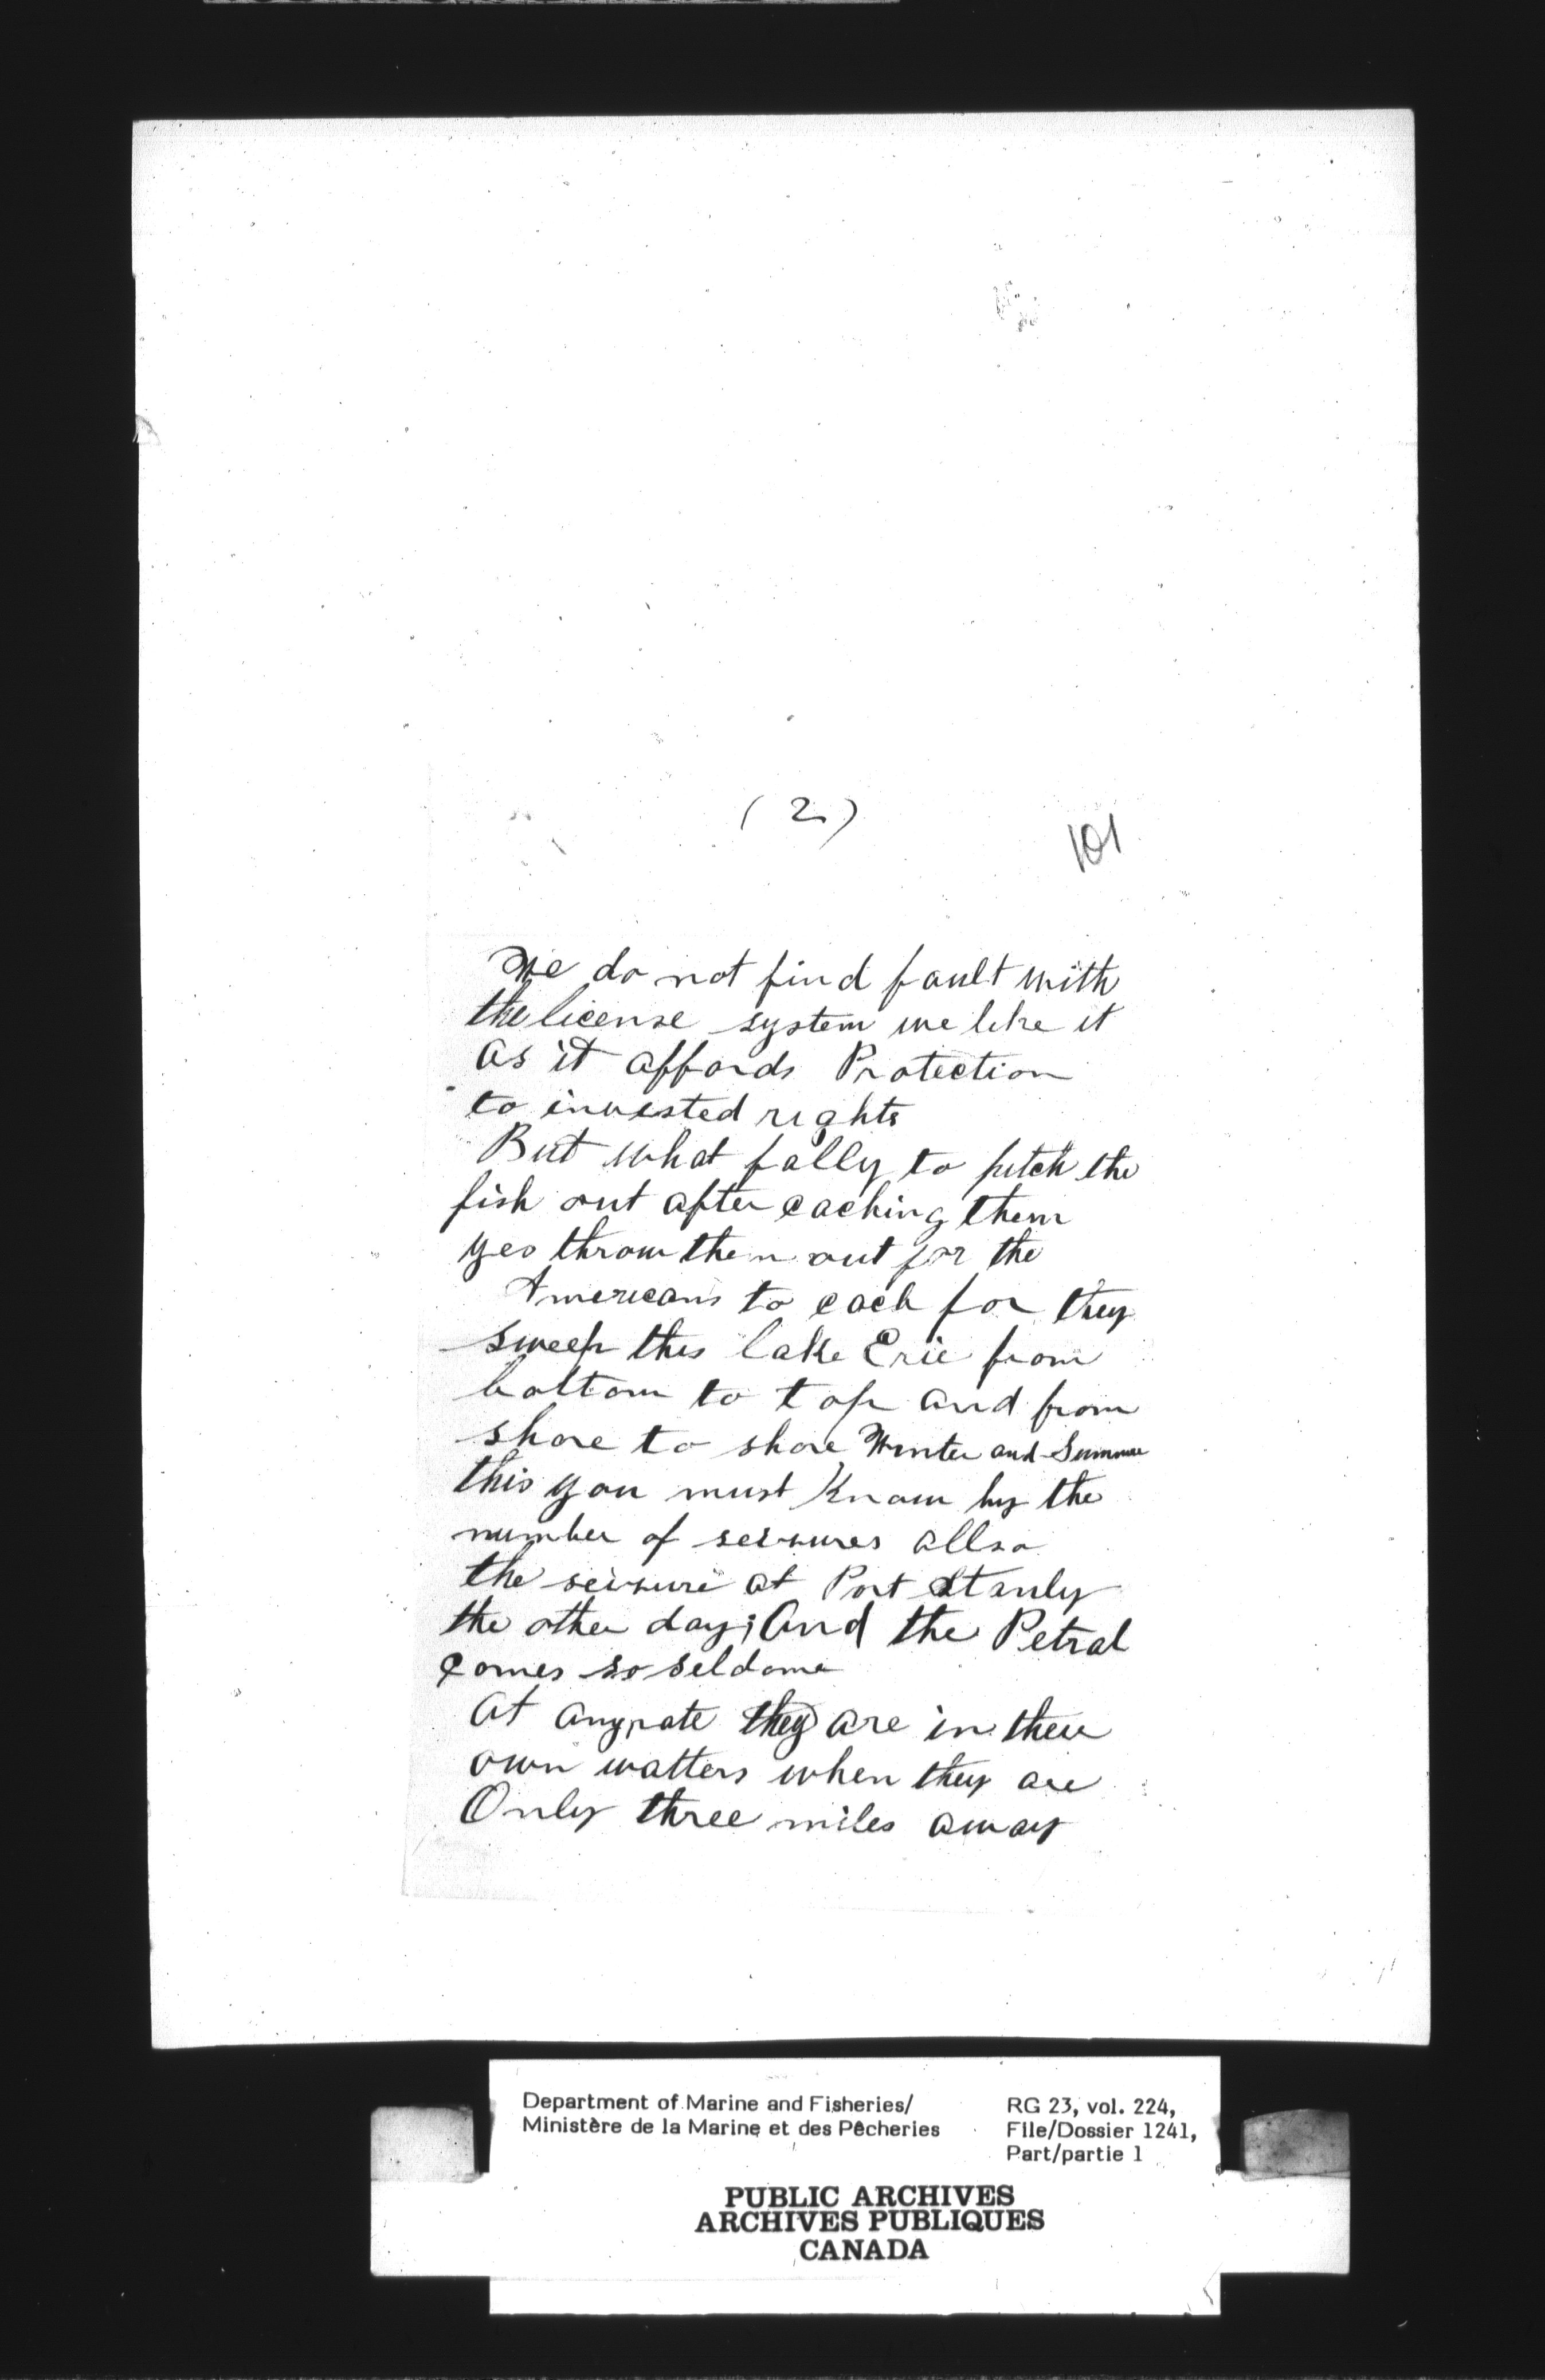 (2)
101
We do not find fault with
the license system we like it
as it affords Protection
to invested rights
But what folly to pitch the
fish out after caching them
yes throw them out for the
Americans to cach for they
sweep this lake Erie from
bottom to top and from
shore to shore Winter and Summer
this you must know by the
number of seisures allso
the seisure at Port Stanly
the other day; And the Petral
comes so seldome
At anyrate they are in their
own watters when they are
Only three miles away
Department of Marine and Fisheries/
Ministère de la Marine et des Pêcheries
RG 23, vol. 224,
File/Dossier 1241,
Part/partie 1
PUBLIC ARCHIVES
ARCHIVES PUBLIQUES
CANADA